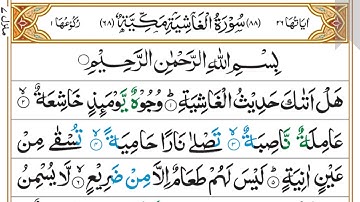 اٰیَاتُهَا ۲۶ (۸۸) سُوْرَةُ الْغَاشِیَةِ مَكِّیَّةٌ (۶۸) رُكُوْعُهَا ۱
بِسْمِ اللّٰهِ الرَّحْمٰنِ الرَّحِیْمِ
هَلْ اَتٰىكَ حَدِیْثُ الْغَاشِیَةِ ۱ وُجُوْهٌ یَّوْمَىِٕذٍ خَاشِعَةٌ ۲
عَامِلَةٌ نَّاصِبَةٌ ۳ تَصْلٰى نَارًا حَامِیَةً ۴ تُسْقٰى مِنْ
عَیْنٍ اٰنِیَةٍ ۵ لَیْسَ لَهُمْ طَعَامٌ اِلَّا مِنْ ضَرِیْعٍ ۶ لَّا یُسْمِنُ